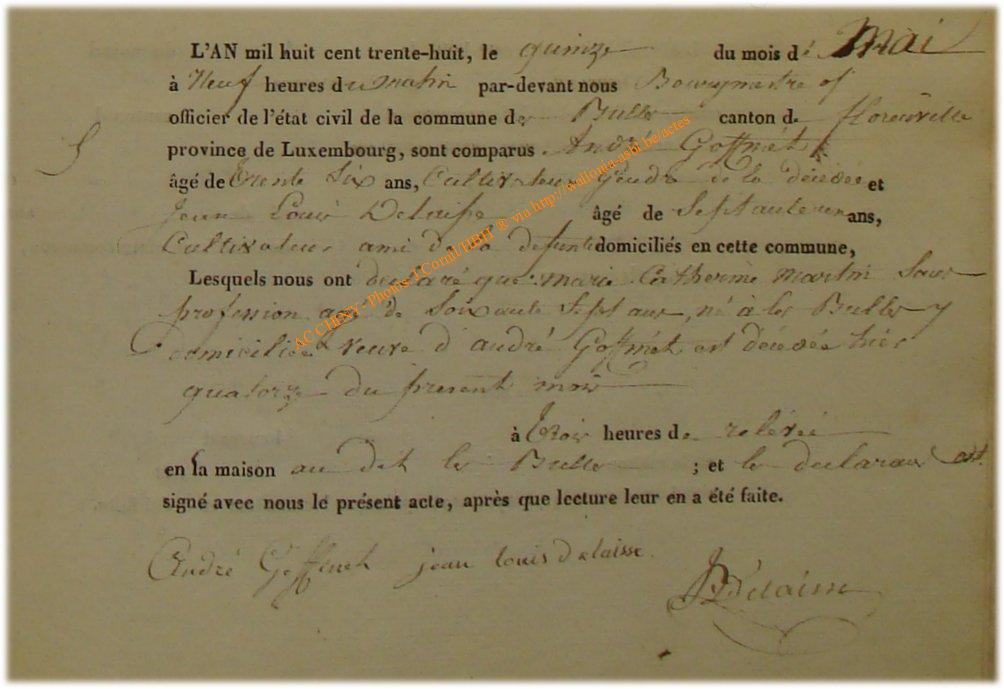 L'AN mil huit cent trente-huit, le quinze du mois de Mai
à Neuf heures du matin par-devant nous Bourgmestre et
officier de l'état civil de la commune des Bulles canton de florenville
province de Luxembourg, sont comparus André Goffinet
âgé de trente six ans, Cultivateur Gendre de la décédée et
Jean Louis Delaisse âgé de Septante un ans,
Cultivateur ami de la defunte domiciliés en cette commune,
Lesquels nous ont declaré que marie Catherine martin sans
profession agé de Soixante Sept ans, né à les Bulles y
domiciliée veuve d andré Goffinet est décédée hier
quatorze du present mois
à trois heures de relévée
en sa maison au dit les Bulles ; et le declarant ont
signé avec nous le présent acte, après que lecture leur en a été faite.
André Goffinet jean louis delaisse
Delaisse
AC CHINY - Photos J.Comil/HBH ® via http://wallonia-asbl.be/actes